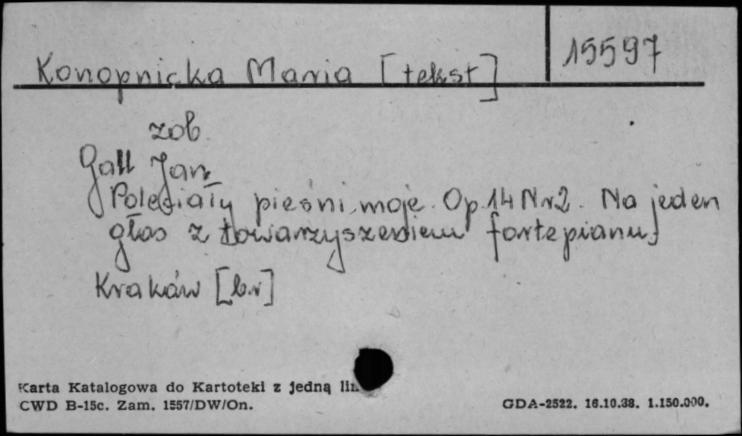 Konopnicka Maria [tekst]
15597
zob.
Gall Jan
Poleciały pieśni moje. Op. 14 Nr 2. Na jeden
głos z towarzyszeniem fortepianu.
Kraków [b.r]
Karta Katalogowa do Kartoteki z jedną
CWD B-15c. Zam. 1557/DW/On.
GDA-2522. 16.10.38. 1.150.000.